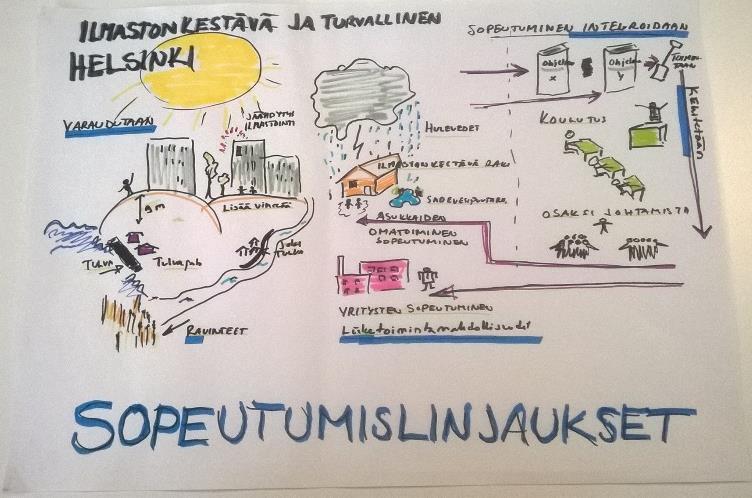 ILMASTONKESTÄVÄ JA TURVALLINEN
HELSINKI
VARAUDUTAAN
JÄÄHDYTYS
ILMASTOINTI
9m
LISÄÄ VIHREÄÄ
TULVA
Tulvapato
JOKI
TULVA
RAVINTEET
HULEVEDET
ILMASTONKESTÄVÄ RAK
SADEVESIPUUTARHA
ASUKKAIDEN
OMATOIMINEN
SOPEUTUMINEN
YRITYSTEN SOPEUTUMINEN
Liiketoimintamahdollisuudet
SOPEUTUMINEN INTEGROIDAAN
Ohjelm
x
Ohjelm
y
KEHITETÄÄN
KOULUTUS
OSAKSI JOHTAMISTA
SOPEUTUMISLINJAUKSET